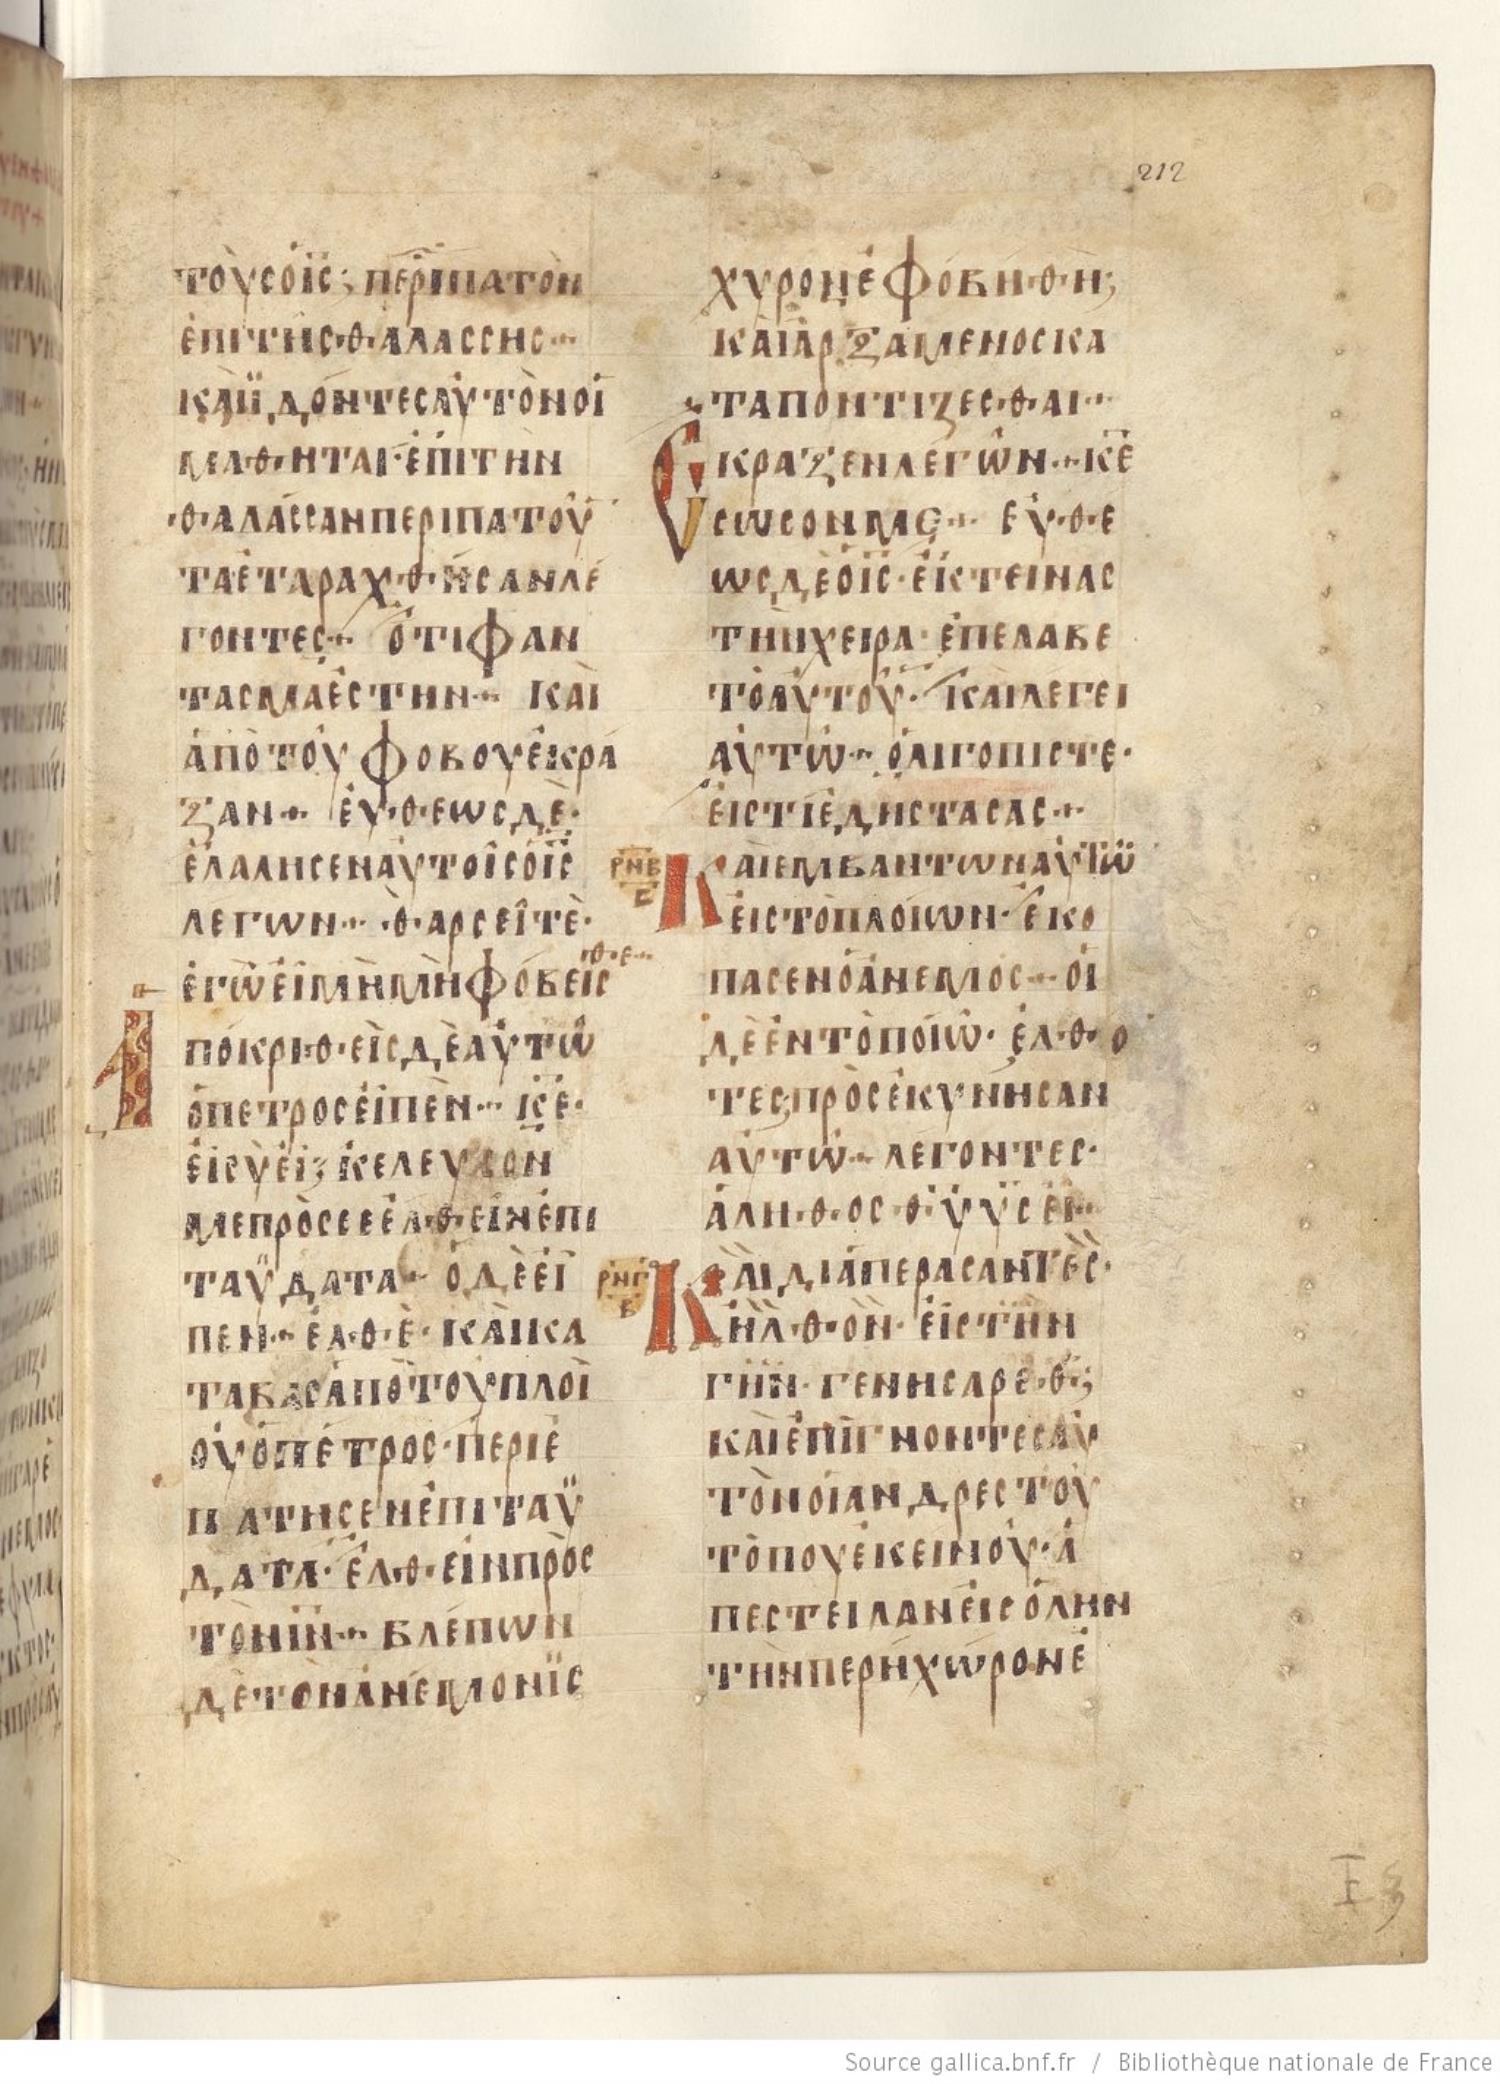 212
ΤΟΥСΟΙС; ΠΕΡΙΠΑΤΟΝ
ΕΠΙΤΗСΘΑΛΑССΗС
ΚΑΙΙΔΟΝΤΕСΑΥΤΟΝΟΙ
ΜΑΘΗΤΑΙ·ΕΠΙΤΗΝ
ΘΑΛΑССΑΝΠΕΡΙΠΑΤΟΥ
ΤΑΕΤΑΡΑΧΘΗСΑΝΛΕ
ΓΟΝΤΕС ΟΤΙΦΑΝ
ΤΑСΜΑΕСΤΗΝ ΚΑΙ
ΑΠΟΤΟΥΦΟΒΟΥΕΚΡΑ
ΞΑΝ ΕΥΘΕΩСΔΕ·
ΕΛΑΛΗСΕΝΑΥΤΟΙСΟΙС
ΛΕΓΩΝ ΘΑΡСΕΙΤΕ·
ΕΓΩΕΙΜΗΜΗΦΟΒΕΙСΘΕ
ΑΠΟΚΡΙΘΕΙСΔΕΑΥΤΩ
ΟΠΕΤΡΟСΕΙΠΕΝ ΚΕ·
ΕΙСΥΕΙ; ΚΕΛΕΥСΟΝ
ΜΕΠΡΟСΕΕΛΘΕΙΝΕΠΙ
ΤΑΥΔΑΤΑ ΟΔΕΕΙ
ΠΕΝ ΕΛΘΕ· ΚΑΙΚΑ
ΤΑΒΑСΑΠΟΤΟΥΠΛΟΙ
ΟΥΟΠΕΤΡΟС·ΠΕΡΙΕ
ΠΑΤΗСΕΝΕΠΙΤΑΥ
ΔΑΤΑ·ΕΛΘΕΙΝΠΡΟС
ΤΟΝΙΝ ΒΛΕΠΩΝ
ΔΕΤΟΝΑΝΕΜΟΝΙС
ΧΥΡΟΝΕΦΟΒΗΘΗ;
ΚΑΙΑΡΞΑΜΕΝΟСΚΑ
ΤΑΠΟΝΤΙΖΕСΘΑΙ
ΕΚΡΑΞΕΝΛΕΓΩΝ ΚΕ
СΩСΟΝΜΕ ΕΥΘΕ
ΩСΔΕΟΙС·ΕΚΤΕΙΝΑС
ΤΗΝΧΕΙΡΑ·ΕΠΕΛΑΒΕ
ΤΟΑΥΤΟΥ·ΚΑΙΛΕΓΕΙ
ΑΥΤΩ ΟΛΙΓΟΠΙСΤΕ·
ΕΙСΤΙΕΔΗСΤΑСΑС
ΡΝΒ Ϛ ΚΑΙΕΜΒΑΝΤΩΝΑΥΤΩ
ΕΙСΤΟΠΛΟΙΩΝ·ΕΚΟ
ΠΑСΕΝΟΑΝΕΜΟС ΟΙ
ΔΕΕΝΤΟΠΟΙΩ·ΕΛΘΟ
ΤΕСΠΡΟСΕΚΥΝΗСΑΝ
ΑΥΤΩ ΛΕΓΟΝΤΕС·
ΑΛΗΘΟСΘΥΥСΕΙ
ΡΝΓ Β ΚΑΙΔΙΑΠΕΡΑСΑΝΤΕС·
ΗΛΘΟΝ·ΕΙСΤΗΝ
ΓΗΝ·ΓΕΝΗСΑΡΕΘ;
ΚΑΙΕΠΙΓΝΟΝΤΕСΑΥ
ΤΟΝΟΙΑΝΔΡΕСΤΟΥ
ΤΟΠΟΥΕΚΕΙΝΟΥ·Α
ΠΕСΤΕΙΛΑΝΕΙСΟΛΗΝ
ΤΗΝΠΕΡΗΧΩΡΟΝΕ
Source gallica.bnf.fr / Bibliothèque nationale de France